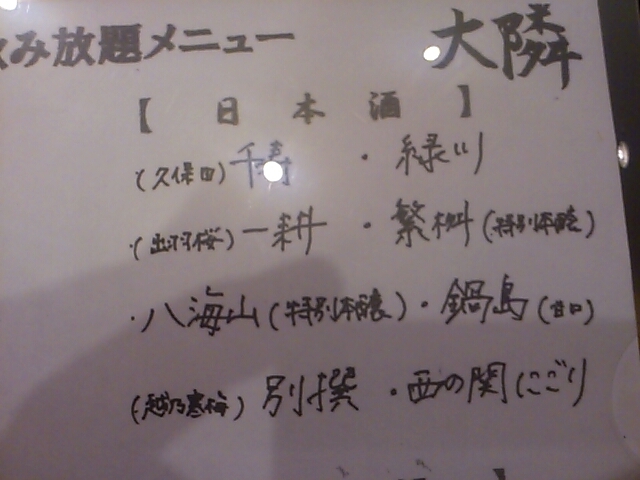 み放題メニュー 大隣
【 日本酒 】
(久保田)千寿 ・緑川
・(出羽桜)一耕 ・繁桝(特別本醸)
・八海山(特別本醸)・鍋島(甘口)
(越乃寒梅)別撰 ・西の関にごり